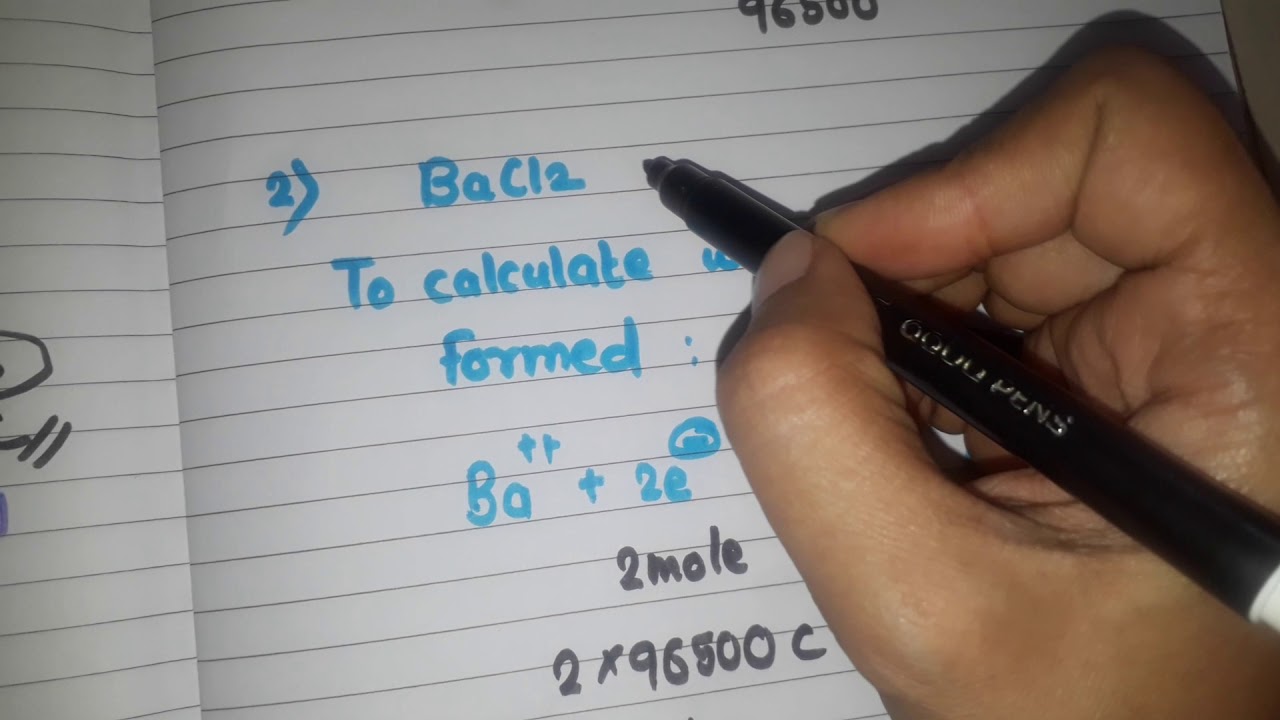 96500
2) BaCl2
To calculate
formed :
Ba++ + 2e⊖
2 mole
2 × 96500 C
PENS